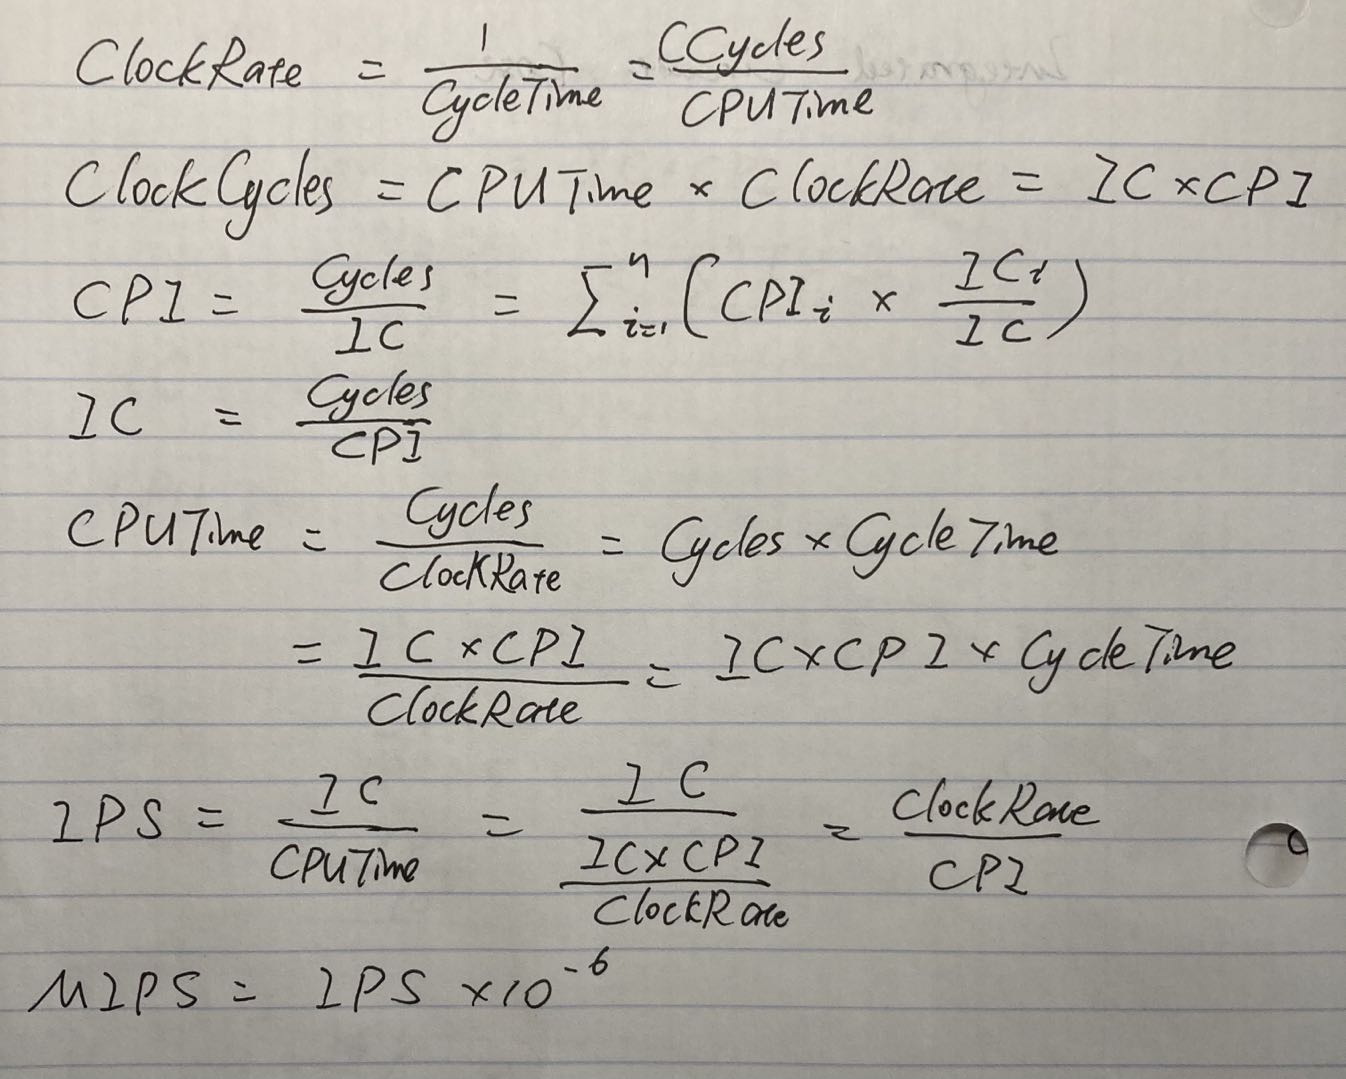 ClockRate = 1 / CycleTime = CCycles / CPUTime
ClockCycles = CPUTime × ClockRate = IC × CPI
CPI = Cycles / IC = Σ_{i=1}^{n} (CPI_i × IC_i / IC)
IC = Cycles / CPI
CPUTime = Cycles / ClockRate = Cycles × CycleTime
= IC × CPI / ClockRate = IC × CPI × CycleTime
IPS = IC / CPUTime = IC / (IC × CPI / ClockRate) = ClockRate / CPI
MIPS = IPS × 10^{-6}